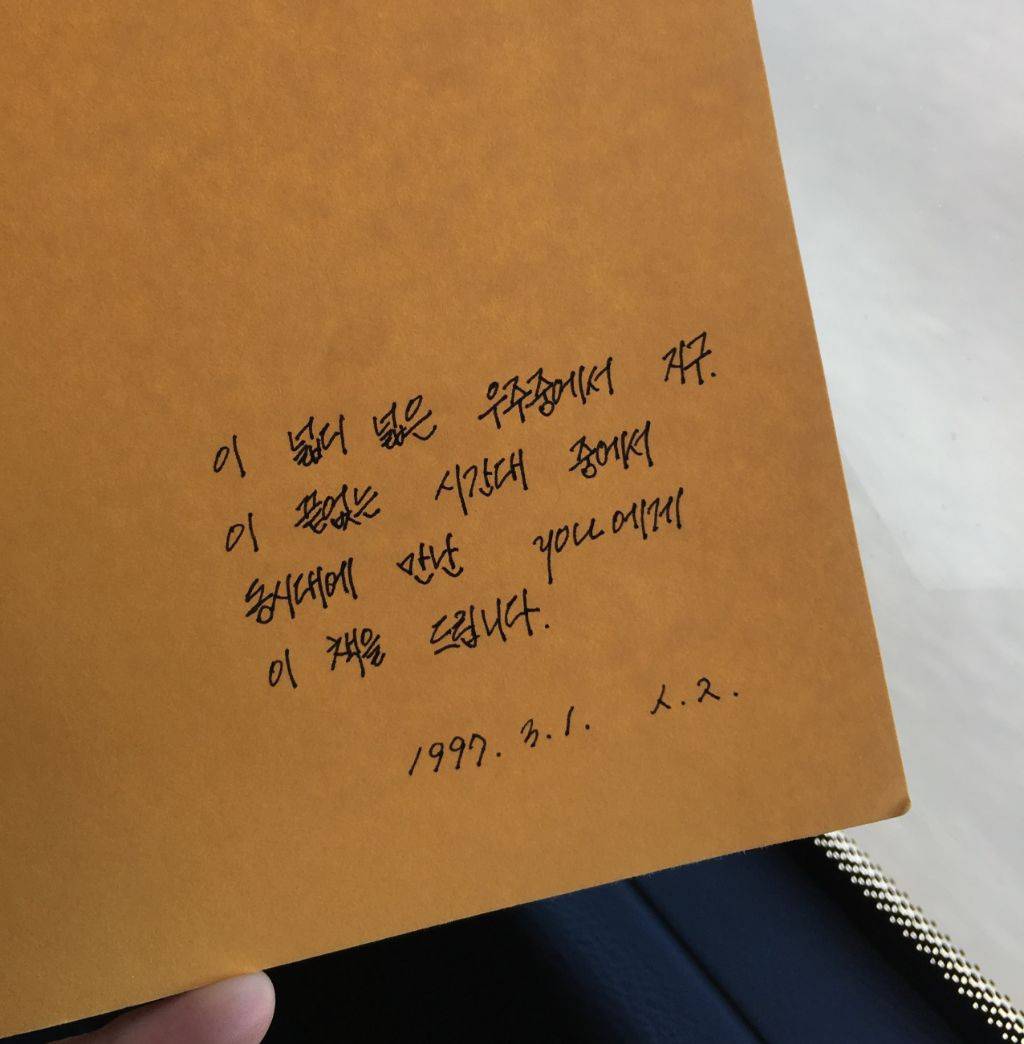 이 넓디 넓은 우주중에서 지구.
이 끝없는 시간대 중에서
동시대에 만난 you에게
이 책을 드립니다.
1997. 3. 1. ㅅ.ㄹ.